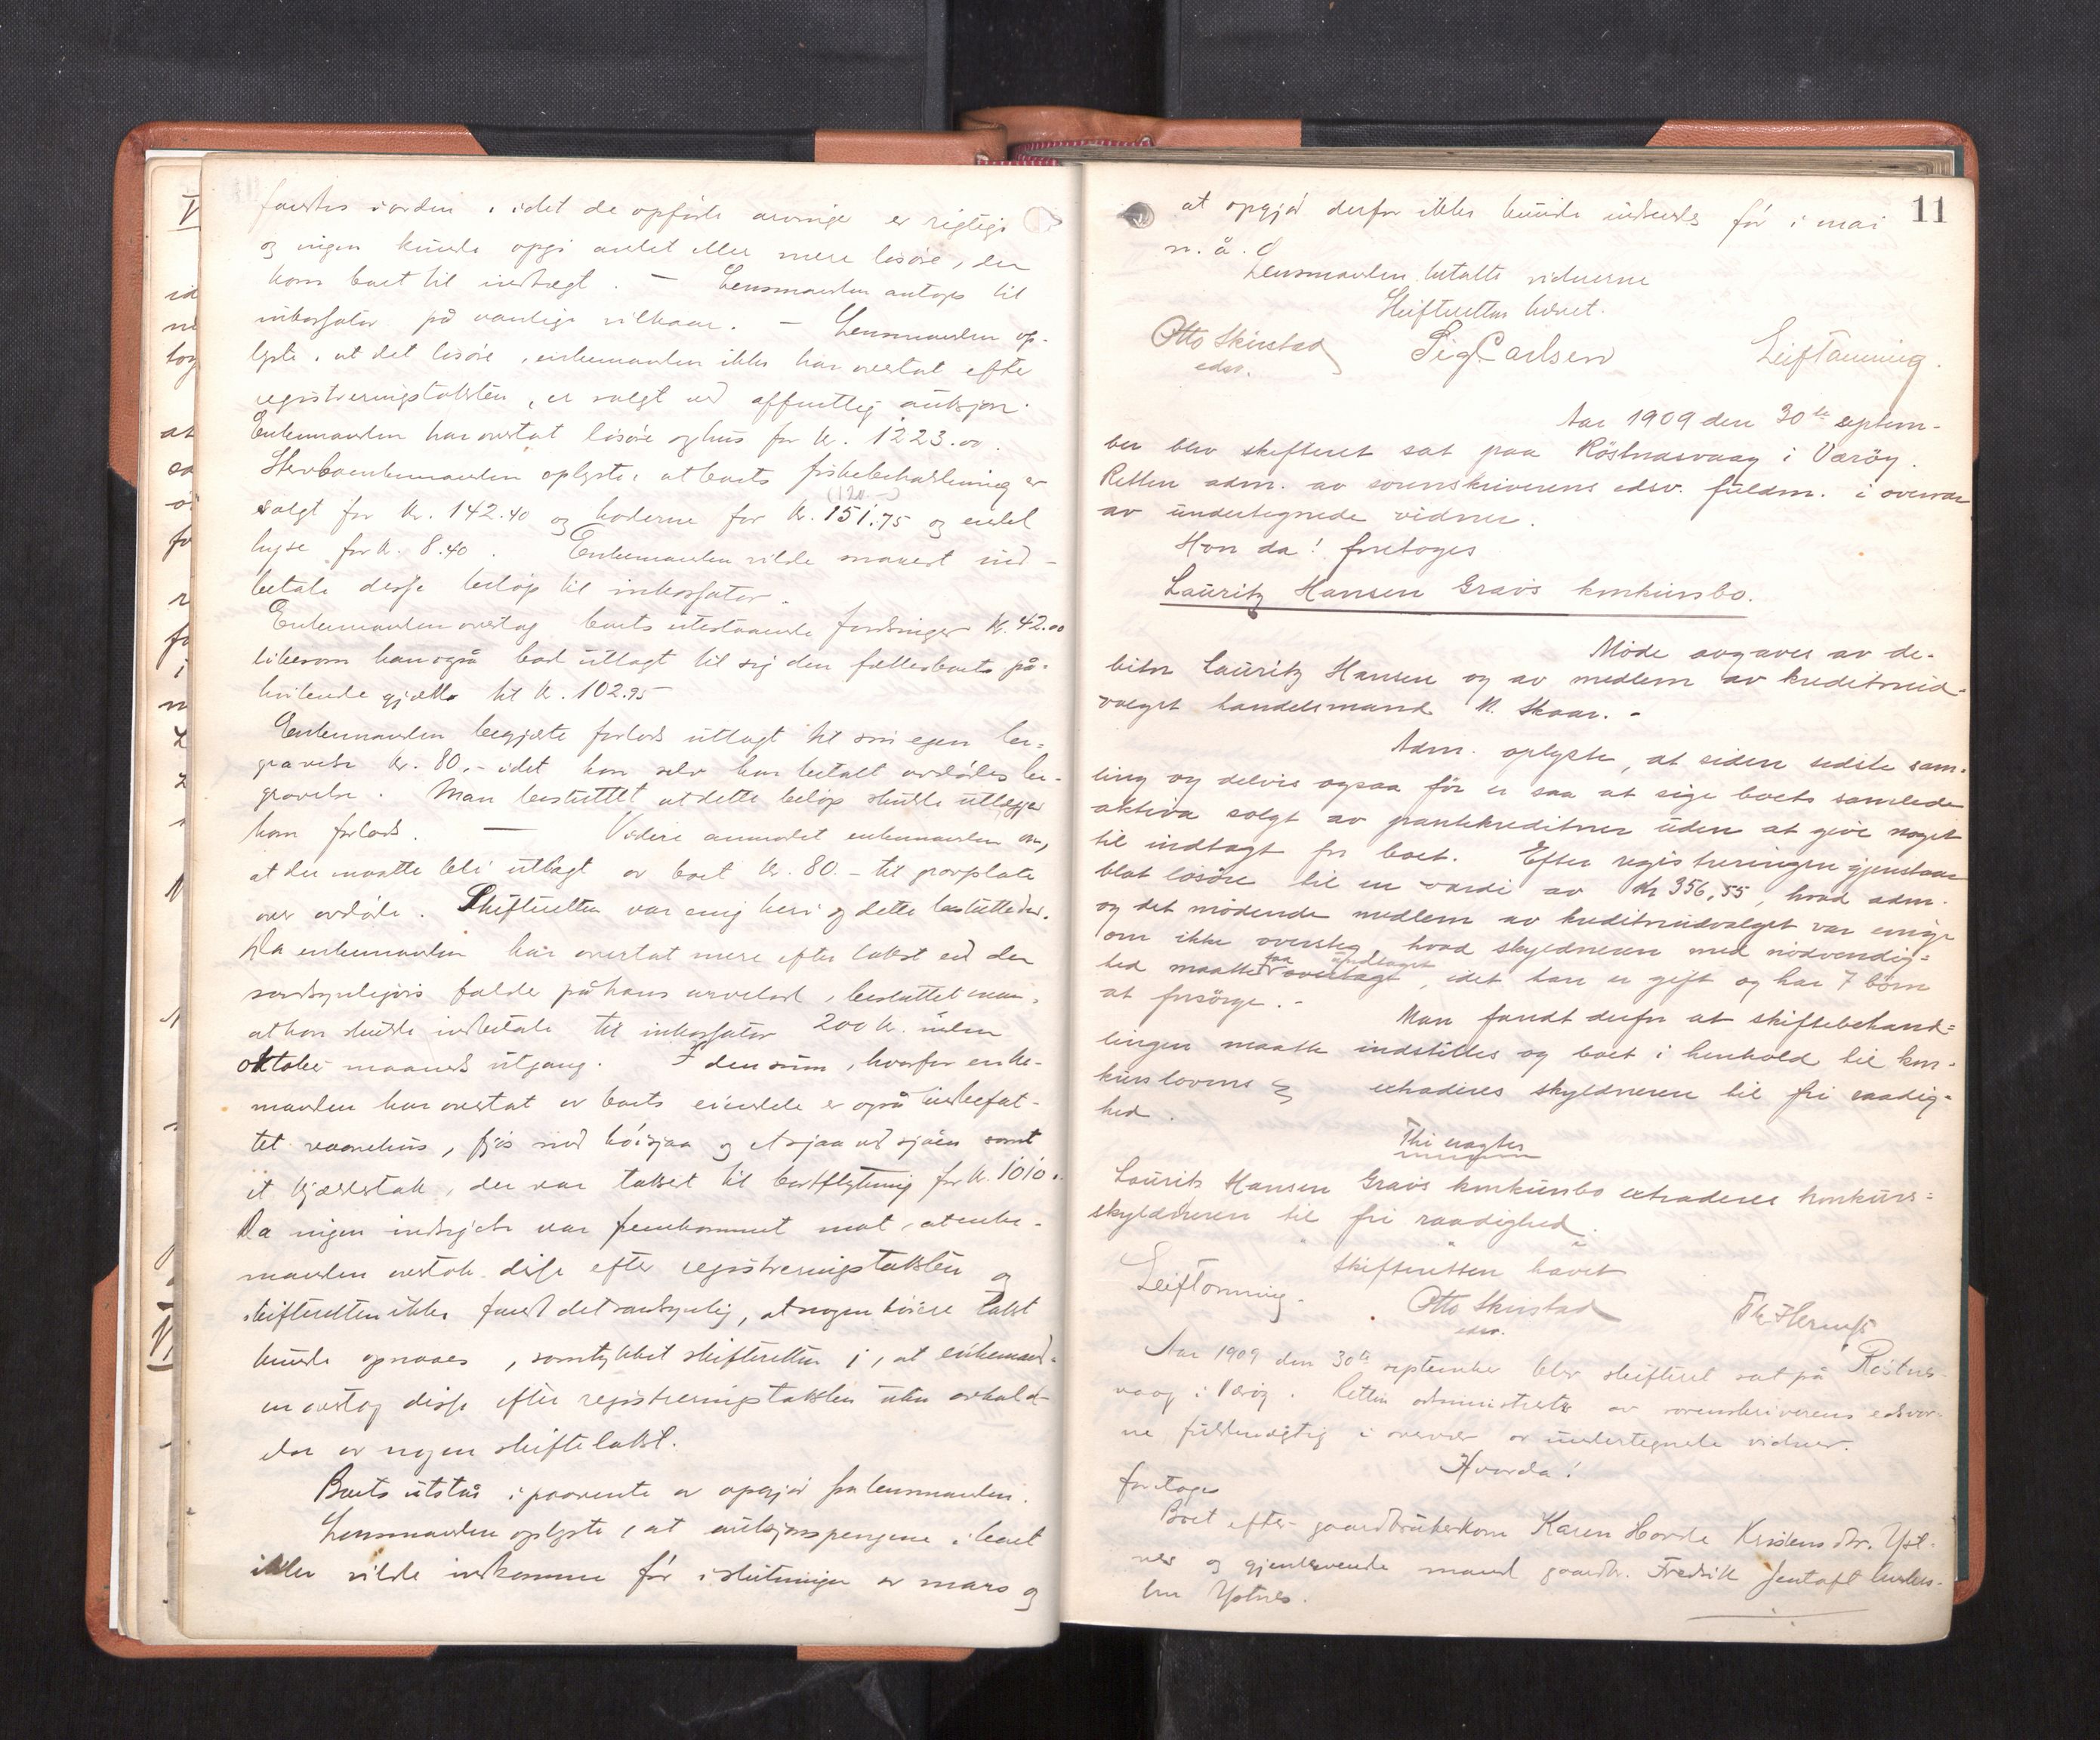 fandtes i orden, idet de opførte arvinge er rigtige
og ingen kunde opgi andet eller mere løsøre, der
kom boet til indtægt. — Lensmanden antoges til
inkassator på vanlige vilkaar. — Lensmanden op-
lyste, at det løsøre, enkemanden ikke har overtat efter
registreringstaksten, er solgt ved offentlig auksjon.
Enkemanden har overtat løsøre og hus for kr. 1223.00.
Enkemanden oplyste, at boets fiskebeholdning er
solgt for kr. 142.40 og hoderne for kr. 151.75 og endel
lyse for kr. 8.40. Enkemanden vilde snarest ind-
betale disse beløp til inkassator.
Enkemanden overtog boets utestaaende fordringer kr. 42.00
likesom han også bad utlagt til sig den fællesboets på-
hvilende gjæld til kr. 102.95
Enkemanden begjærte forlods utlagt til sin egen be-
gravelse kr. 80.- idet han selv har betalt avdødes be-
gravelse. Man besluttet at dette beløp skulde utlægges
ham forlods. — Videre anmodet enkemanden om,
at der maatte bli utlagt av boet kr. 80.- til gravplate
over avdøde. Skifteretten var enig heri og dette besluttedes.
Da enkemanden har overtat mere efter takst end der
sandsynligvis falder på hans arvelod, besluttet man,
at han skulde indbetale til inkassator 200 kr. inden
oktober maaneds utgang. I den sum, hvorfor enke-
manden har overtat av boets eiendele er også indbefat-
tet vaanehus, fjøs med høisjaa og et sjaa ved sjøen samt
it kjældertak, der var takset til bortflytning for kr. 1010.
Da ingen indsigelse var fremkommet mot, at enke-
manden overtok disse efter registreringstaksten og
skifteretten ikke fandt det sandsynlig, at nogen høiere takst
kunde opnaaes, samtykket skifteretten i, at enkemand-
en overtog disse efter registreringstaksten uten avhold-
else av nogen skiftetakst.
Boets utstår i paavente av opgjør fra lensmanden.
Lensmanden oplyste, at auksjonspengene i boet
ikke vilde indkomme før i slutningen av mars og
11
at opgjør derfor ikke kunde indsendes før i mai
n. å.
Lensmanden betalte vidnerne
Skifteretten hævet.
Otto Skirstad Sig. Carlsen Leif Tønning.
edsv.
Aar 1909 den 30te septem-
ber blev skifteret sat paa Røstnesvaag i Værøy.
Retten adm. av sorenskriverens edsv. fuldm. i overvær
av undertegnede vidner.
Hvor da! foretoges
Lauritz Hansen Gravs konkursbo.
Møde avgaves av de-
bitor Lauritz Hansen og av medlem av kreditorud-
valget handelsmand N. Skaar. -
Adm. oplyste, at siden sidste sam-
ling og delvis ogsaa før er saa at sige boets samlede
aktiva solgt av pantekreditorer uden at give noget
til indtægt for boet. Efter registreringen gjenstaar
blot løsøre til en værdi av Kr 356,55, hvad adm.
og det mødende medlem av kreditorudvalget var enige
om ikke oversteg, hvad skyldneren med nødvendig-
hed maatte faa undtaget, idet han er gift og har 7 børn
at forsørge. -
Man fandt derfor at skiftebehand-
lingen maatte indstilles og boet i henhold til kon-
kurslovens § extraderes skyldneren til fri raadig-
hed.
Thi eragtes
Lauritz Hansen Gravs konkursbo extraderes konkurs-
skyldneren til fri raadighed.
Skifteretten hævet
Leif Tønning. Otto Skirstad
edsv.
Aar 1909 den 30te september blev skifteret sat på Røstnes-
vaag i Værøy. Retten administrertes av sorenskriverens edsvor-
ne fuldmægtig i overvær av undertegnede vidner.
Hvorda!
foretoges
Boet efter gaardbrukerkone Karen Hovde Kristensdtr. Yst-
nes og gjenlevende mand gaardbr. Fredrik Jentoft Anders-
sen Ystnes.